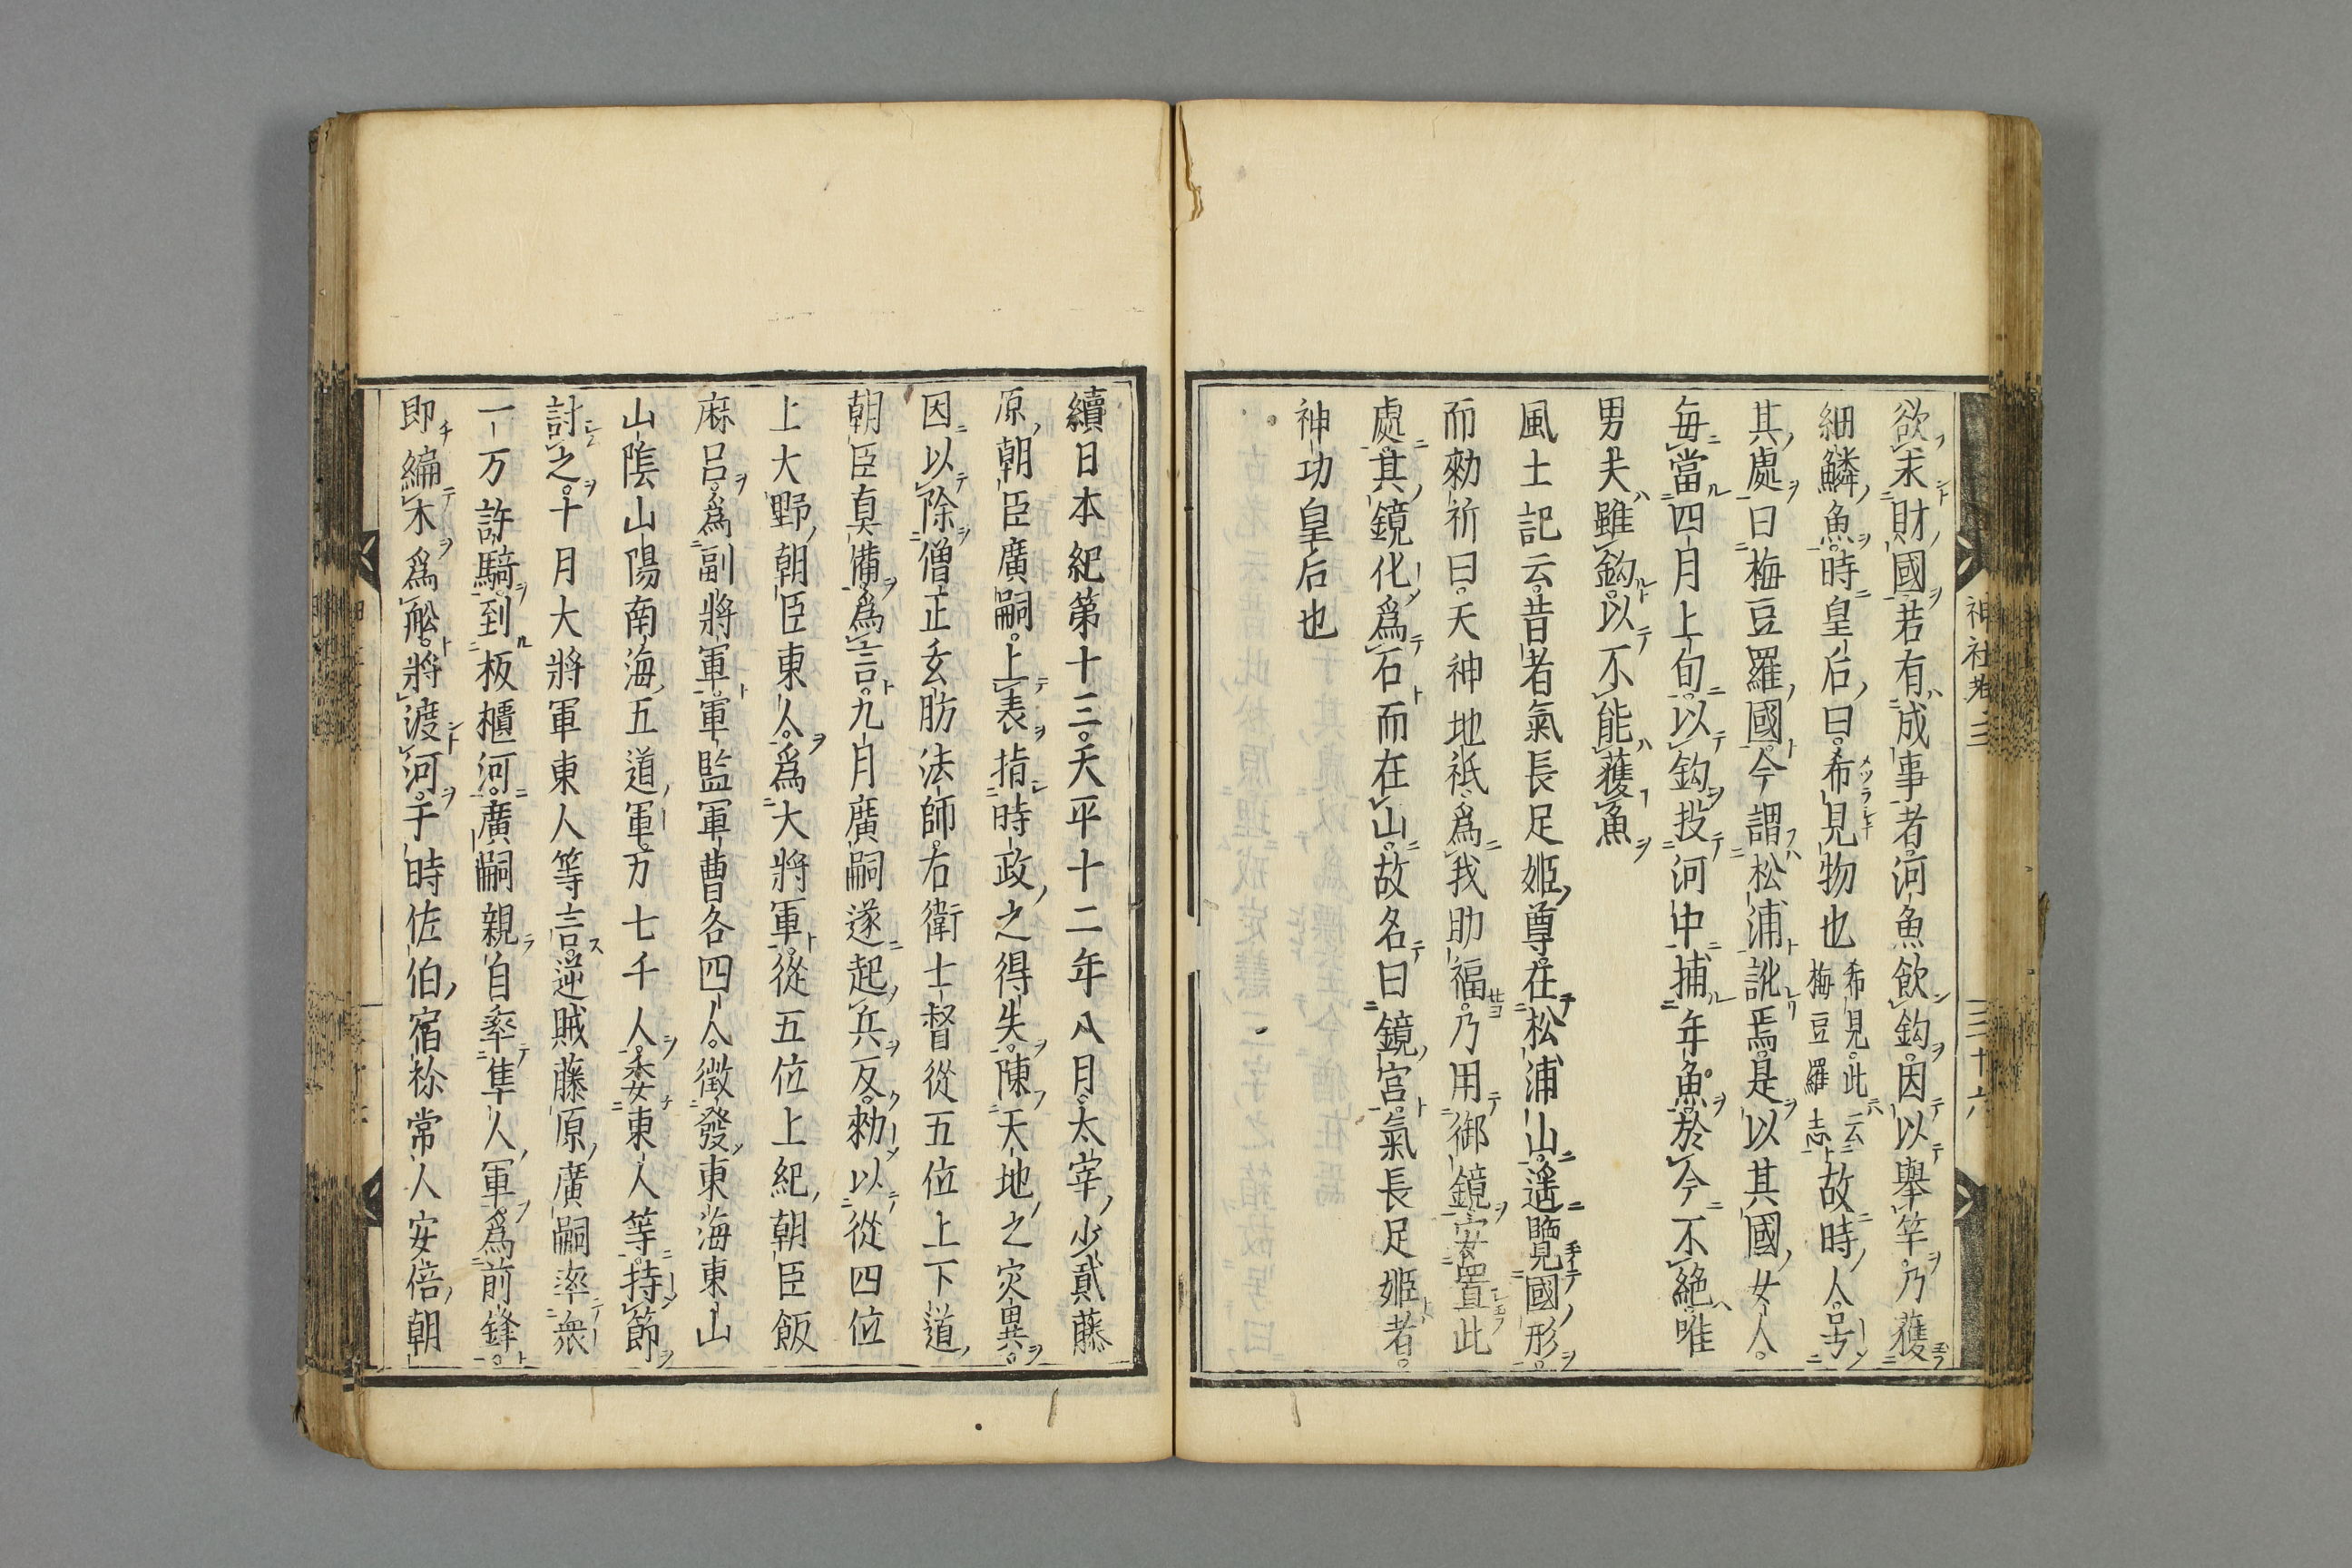 欲求財國若有成事者河魚飲鈎因以擧竿乃獲
細鱗魚時皇后曰希見物也希見此云梅豆羅志故時人号
其處曰梅豆羅國今謂松浦訛焉是以其國女人
毎當四月上旬以鈎投河中捕年魚於今不絶唯
男夫雖鈎以不能獲魚
風土記云昔者氣長足姬尊在松浦山遥覽國形
而勅祈曰天神地祇爲我助福乃用御鏡安置此
處其鏡化爲石而在山故名曰鏡宮氣長足姬者
神功皇后也
神社考三
三十六
續日本紀第十三天平十二年八月太宰少貳藤
原朝臣廣嗣上表指時政之得失陳天地之灾異
因以除僧正玄肪法師右衛士督從五位上下道
朝臣真備爲言九月廣嗣遂起兵反勅以從四位
上大野朝臣東人爲大將軍從五位上紀朝臣飯
麻呂爲副將軍軍監軍曹各四人徴發東海東山
山陰山陽南海五道軍万七千人委東人等持節
討之十月大將軍東人等言逆賊藤原廣嗣率衆
一万許騎到板櫃河廣嗣親自率隼人軍爲前鋒
即編木爲舩將渡河于時佐伯宿祢常人安倍朝